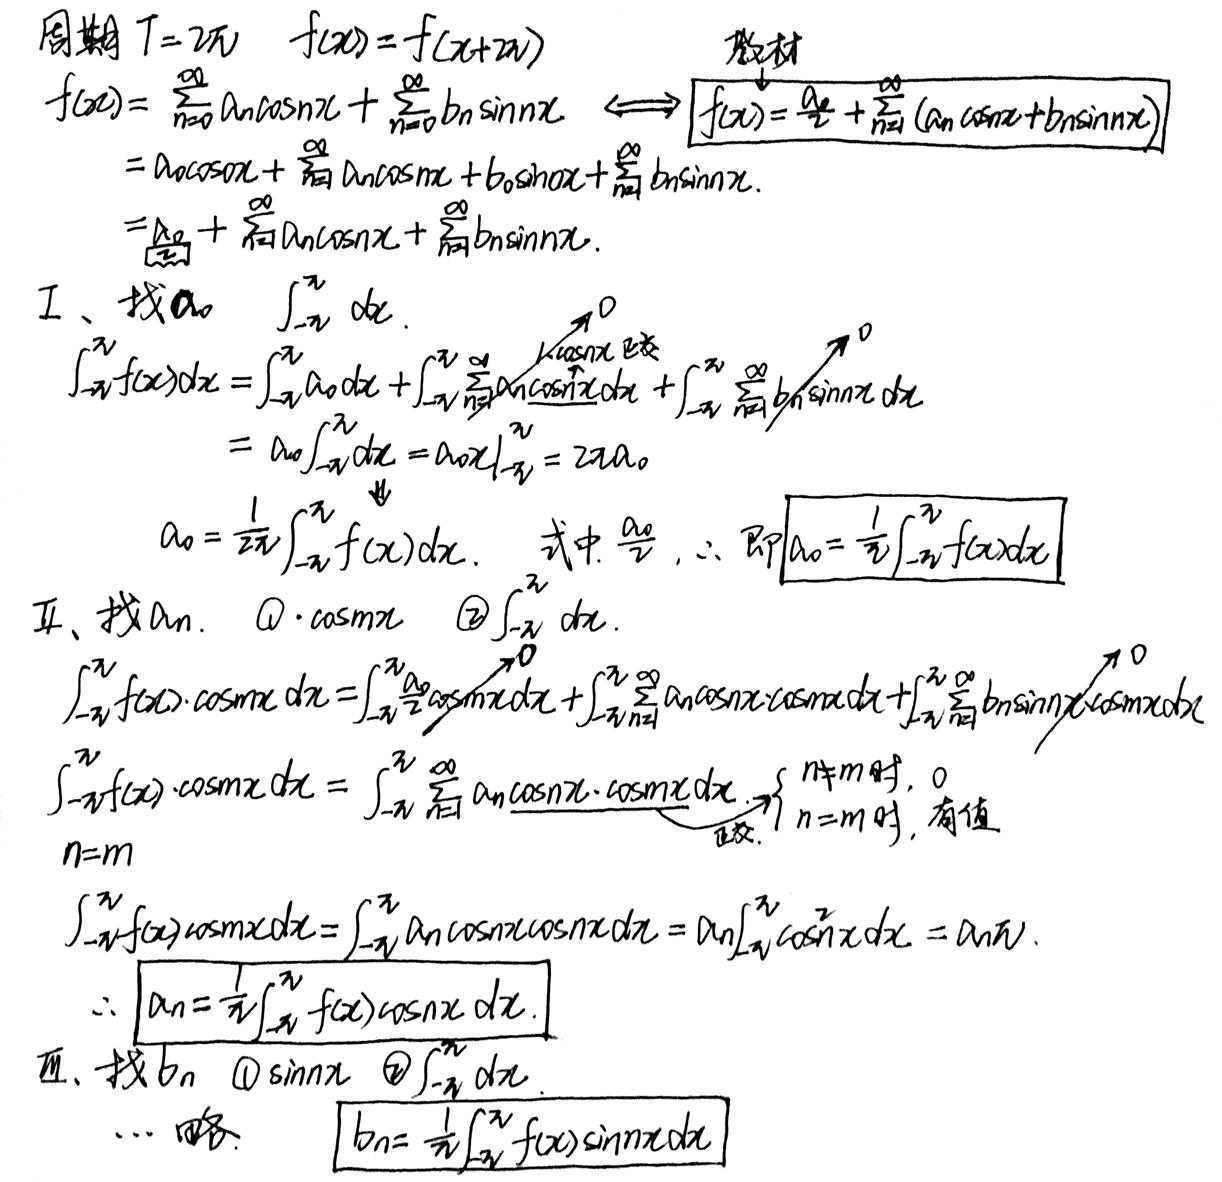 周期 T=2π  f(x)=f(x+2π)  教材
f(x)= ∑_{n=0}^{∞} aₙcosnx + ∑_{n=0}^{∞} bₙsinnx ⟺ f(x)= a₀/2 + ∑_{n=1}^{∞} (aₙcosnx+bₙsinnx)
= a₀cos0x + ∑_{n=1}^{∞} aₙcosnx + b₀sin0x + ∑_{n=1}^{∞} bₙsinnx.
= a₀/2 + ∑_{n=1}^{∞} aₙcosnx + ∑_{n=1}^{∞} bₙsinnx.
Ⅰ、找a₀  ∫_{-π}^{π} dx.
1·cosnx 正交 → 0  → 0
∫_{-π}^{π} f(x)dx = ∫_{-π}^{π} a₀dx + ∫_{-π}^{π} ∑_{n=1}^{∞} aₙcosnxdx + ∫_{-π}^{π} ∑_{n=1}^{∞} bₙsinnxdx
= a₀∫_{-π}^{π} dx = a₀x|_{-π}^{π} = 2πa₀
⇓
a₀ = 1/2π ∫_{-π}^{π} f(x)dx.  式中 a₀/2 , ∴ 即 a₀ = 1/π ∫_{-π}^{π} f(x)dx
Ⅱ、找aₙ. ① ·cosmx ② ∫_{-π}^{π} dx.
∫_{-π}^{π} f(x)·cosmxdx = ∫_{-π}^{π} a₀/2 cosmxdx → 0 + ∫_{-π}^{π} ∑_{n=1}^{∞} aₙcosnx·cosmxdx + ∫_{-π}^{π} ∑_{n=1}^{∞} bₙsinnx·cosmxdx → 0
∫_{-π}^{π} f(x)·cosmxdx = ∫_{-π}^{π} ∑_{n=1}^{∞} aₙcosnx·cosmxdx. 正交. → { n≠m时, 0
n=m时, 有值
n=m
∫_{-π}^{π} f(x)cosmxdx = ∫_{-π}^{π} aₙcosnxcosnxdx = aₙ∫_{-π}^{π} cos²nxdx = aₙπ.
∴ aₙ = 1/π ∫_{-π}^{π} f(x)cosnxdx.
Ⅲ、找bₙ ① sinnx ② ∫_{-π}^{π} dx.
… 略.  bₙ = 1/π ∫_{-π}^{π} f(x)sinnxdx